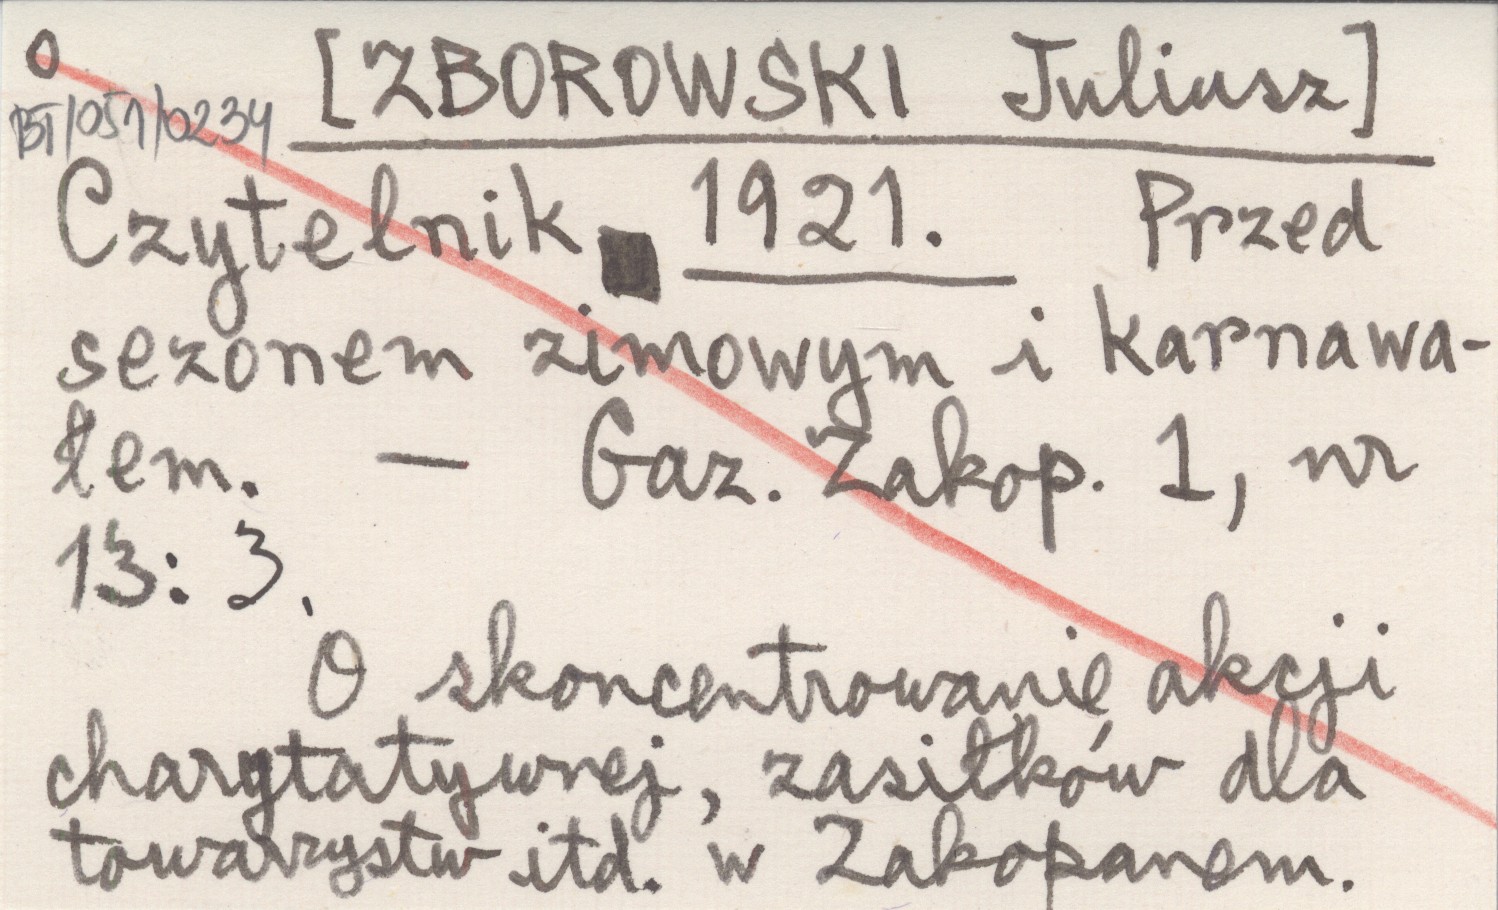 0
BT/051/0234
[ZBOROWSKI Juliusz]
Czytelnik 1921. Przed
sezonem zimowym i karnawa-
łem. — Gaz. Zakop. 1, nr
13: 3.
O skoncentrowanie akcji
charytatywnej, zasiłków dla
towarzystw itd. w Zakopanem.